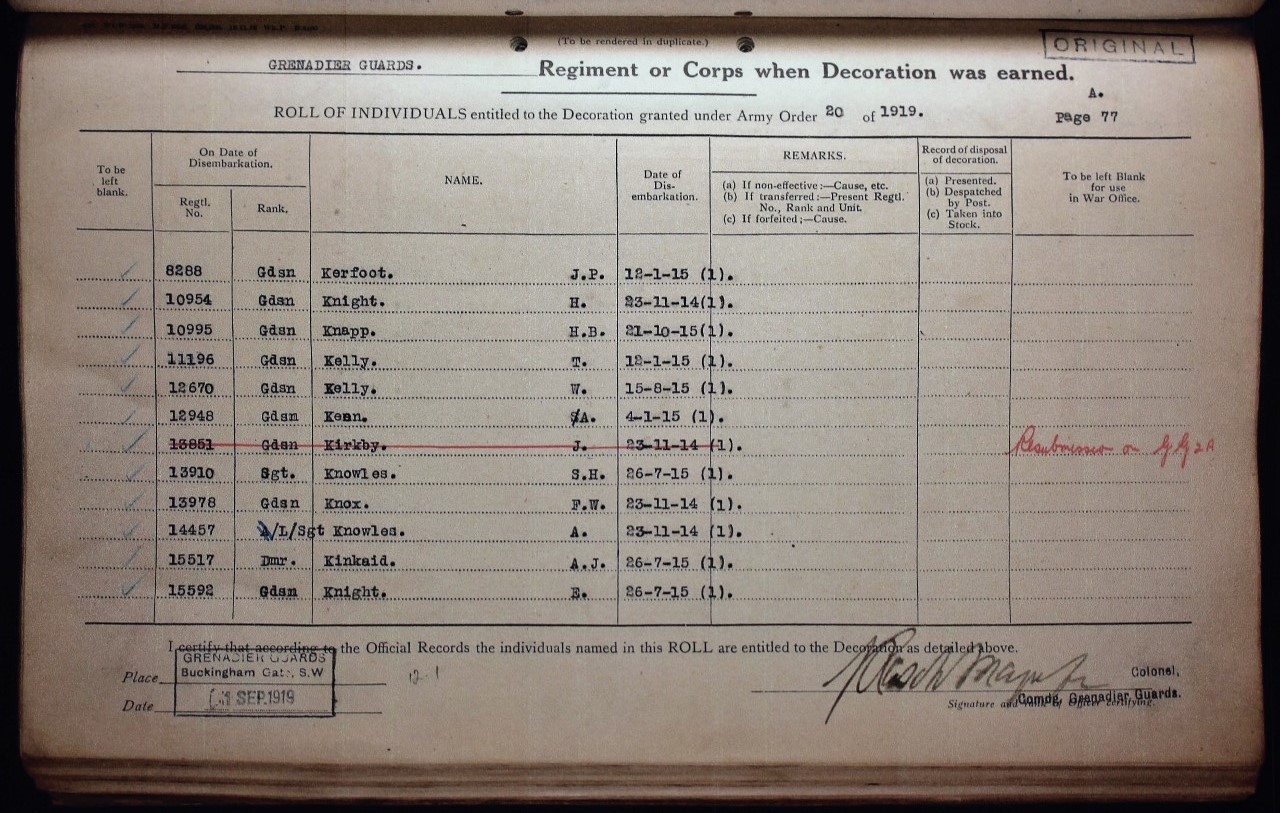 (To be rendered in duplicate.)
ORIGINAL
GRENADIER GUARDS. Regiment or Corps when Decoration was earned.
A.
ROLL OF INDIVIDUALS entitled to the Decoration granted under Army Order 20 of 1919. Page 77
To be left blank.
On Date of Disembarkation.
Regtl. No.
Rank.
NAME.
Date of Dis-embarkation.
REMARKS.
(a) If non-effective:—Cause, etc.
(b) If transferred:—Present Regtl. No., Rank and Unit.
(c) If forfeited;—Cause.
Record of disposal of decoration.
(a) Presented.
(b) Despatched by Post.
(c) Taken into Stock.
To be left Blank for use in War Office.
8288 Gdsn Kerfoot. J.P. 12-1-15 (1).
10954 Gdsn Knight. H. 23-11-14(1).
10995 Gdsn Knapp. H.B. 21-10-15(1).
11196 Gdsn Kelly. T. 12-1-15 (1).
12670 Gdsn Kelly. W. 15-8-15 (1).
12948 Gdsn Kean. A. 4-1-15 (1).
13851 Gdsn Kirkby. J. 23-11-14 (1).
13910 Sgt. Knowles. S.H. 26-7-15 (1).
13978 Gdsn Knox. F.W. 23-11-14 (1).
14457 /L/Sgt Knowles. A. 23-11-14 (1).
15517 Dmr. Kinkaid. A.J. 26-7-15 (1).
15592 Gdsn Knight. E. 26-7-15 (1).
I certify that according to the Official Records the individuals named in this ROLL are entitled to the Decoration as detailed above.
GRENADIER GUARDS
Buckingham Gate, S.W
Place
SEP.1919
Date
Colonel,
Comdg, Grenadier Guards.
Signature and rank of Officer certifying.